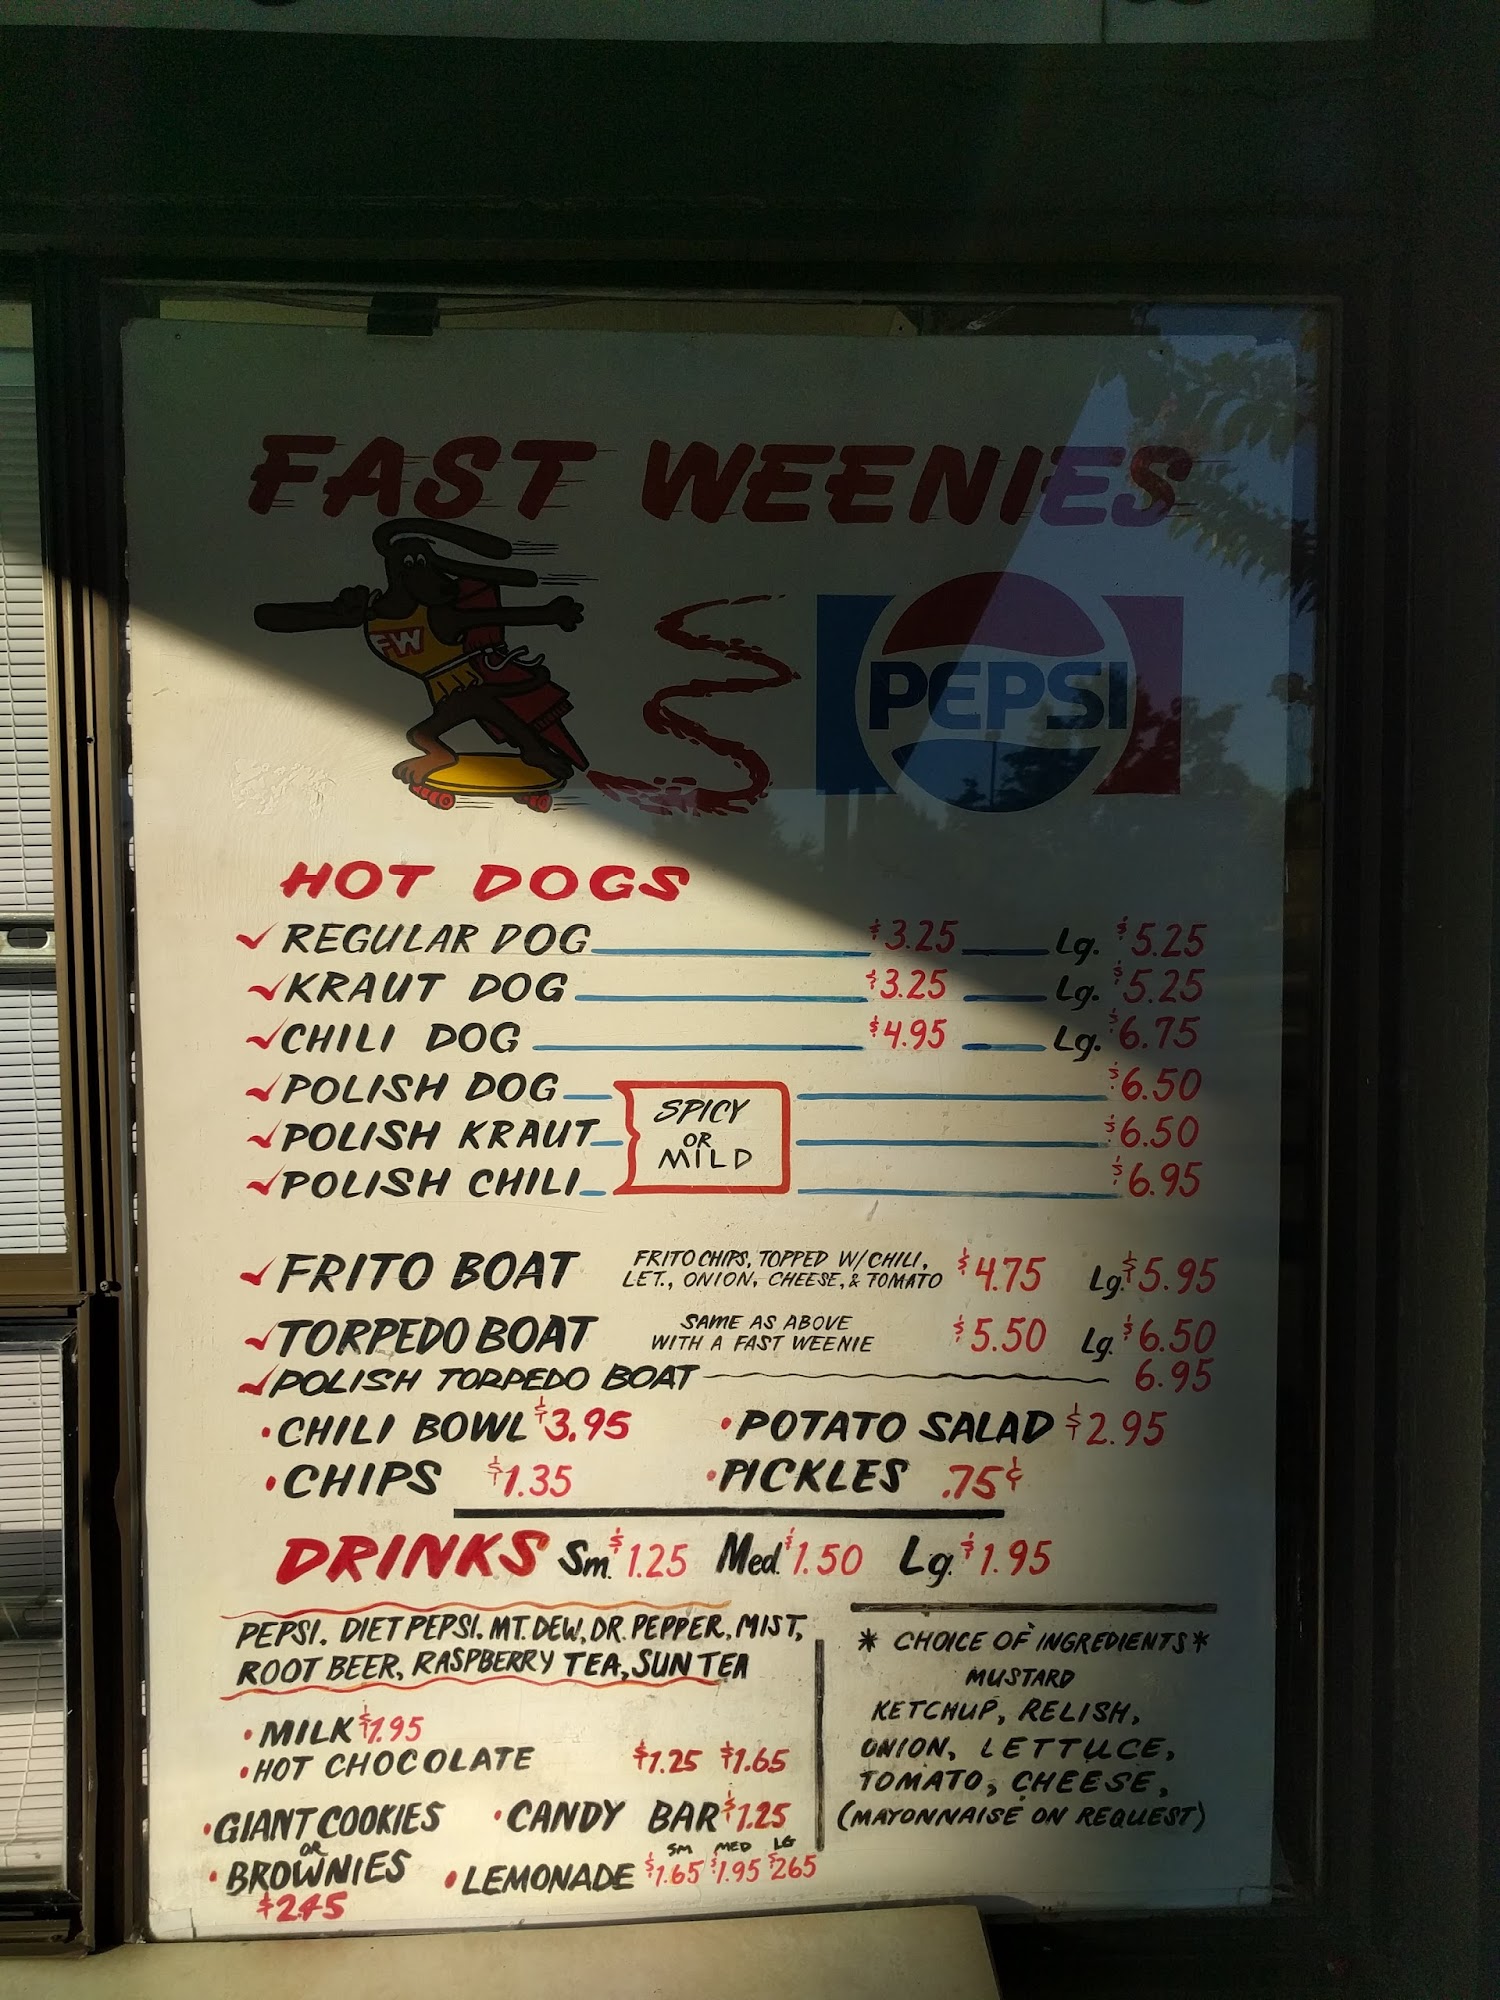 FAST WEENIES
FW
PEPSI
HOT DOGS
REGULAR DOG $3.25 Lg. $5.25
KRAUT DOG $3.25 Lg. $5.25
CHILI DOG $4.95 Lg. $6.75
POLISH DOG $6.50
POLISH KRAUT $6.50
POLISH CHILI $6.95
SPICY
OR
MILD
FRITO BOAT FRITO CHIPS, TOPPED W/CHILI, $4.75 Lg. $5.95
LET., ONION, CHEESE, & TOMATO
TORPEDO BOAT SAME AS ABOVE $5.50 Lg. $6.50
WITH A FAST WEENIE
POLISH TORPEDO BOAT 6.95
• CHILI BOWL $3.95 • POTATO SALAD $2.95
• CHIPS $1.35 • PICKLES .75¢
DRINKS Sm. $1.25 Med. $1.50 Lg. $1.95
PEPSI, DIET PEPSI, MT. DEW, DR. PEPPER, MIST,
ROOT BEER, RASPBERRY TEA, SUN TEA
• MILK $1.95
• HOT CHOCOLATE $1.25 $1.65
• GIANT COOKIES • CANDY BAR $1.25
OR
SM MED LG
• BROWNIES • LEMONADE $1.65 $1.95 $265
$245
* CHOICE OF INGREDIENTS *
MUSTARD
KETCHUP, RELISH,
ONION, LETTUCE,
TOMATO, CHEESE,
(MAYONNAISE ON REQUEST)